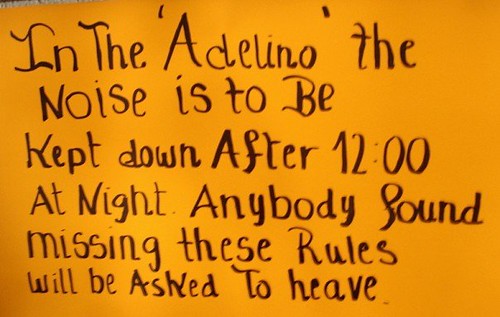 In The 'Adelino' the
Noise is to Be
Kept down After 12:00
At Night. Anybody found
missing these Rules
will be Asked To heave.